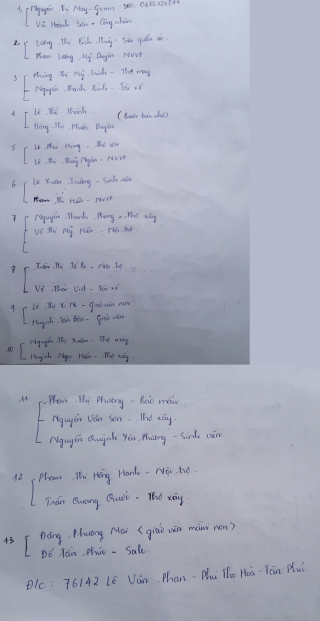 1 Nguyễn Thị May
Võ Hoành Sơn - Công nhân
2 Lương Thị Bích Thủy - Sửa quần áo
Phan Lương Mỹ Duyên - NVVP
3 Phùng Thị Mỹ Trinh - Thợ may
Nguyễn Thanh Bình - Tài xế
4 Lê Thế Thành
Đặng Thị Phước Duyên (Buôn bán nhỏ)
5 Lê Phú
Lê Thị Thúy Ngân - NVVP
6 Lê Xuân Trường - Sinh viên
Phạm Thị Hiền - NVVP
7 Nguyễn Thanh Phong - Thợ xây
Võ Thị Mỹ Hiền - Nội trợ
8 Trần Thị Tè Bi - Nội trợ
Võ Thái Việt - Tài xế
9 Lê Thị - Giáo viên
Huỳnh Tấn - Giáo viên
10 Nguyễn Thị Xuân - Thợ may
Huỳnh Ngọc Hiền - Thợ xây.
11 Phạm Thị Phương - Bảo mẫu
Nguyễn Văn Sơn - Thợ xây.
Nguyễn Quỳnh Yến Phương - Sinh viên
12 Phạm Thị Hồng Hạnh - Nội trợ.
Trần Quang Quốc - Thợ xây.
13 Đặng Phương Mai < giáo viên mầm non >
Đỗ Tấn Phúc - Sale.
Đ/c: 76/42 Lê Văn Phan - Phú Thọ Hoà - Tân Phú